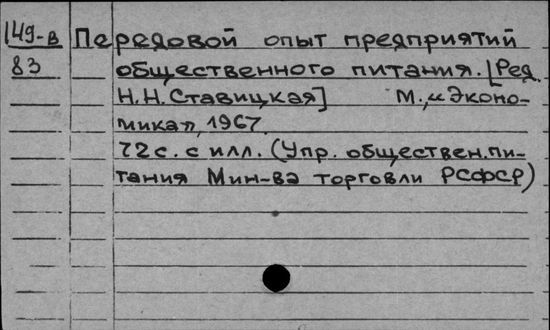 149-в Передовой опыт предприятий
83 общественного питания. [Ред.
Н.Н. Ставицкая] М., „Эконо-
мика", 1967.
72 с. с илл. (Упр. обществен. пи-
тания Мин-ва торговли РСФСР)